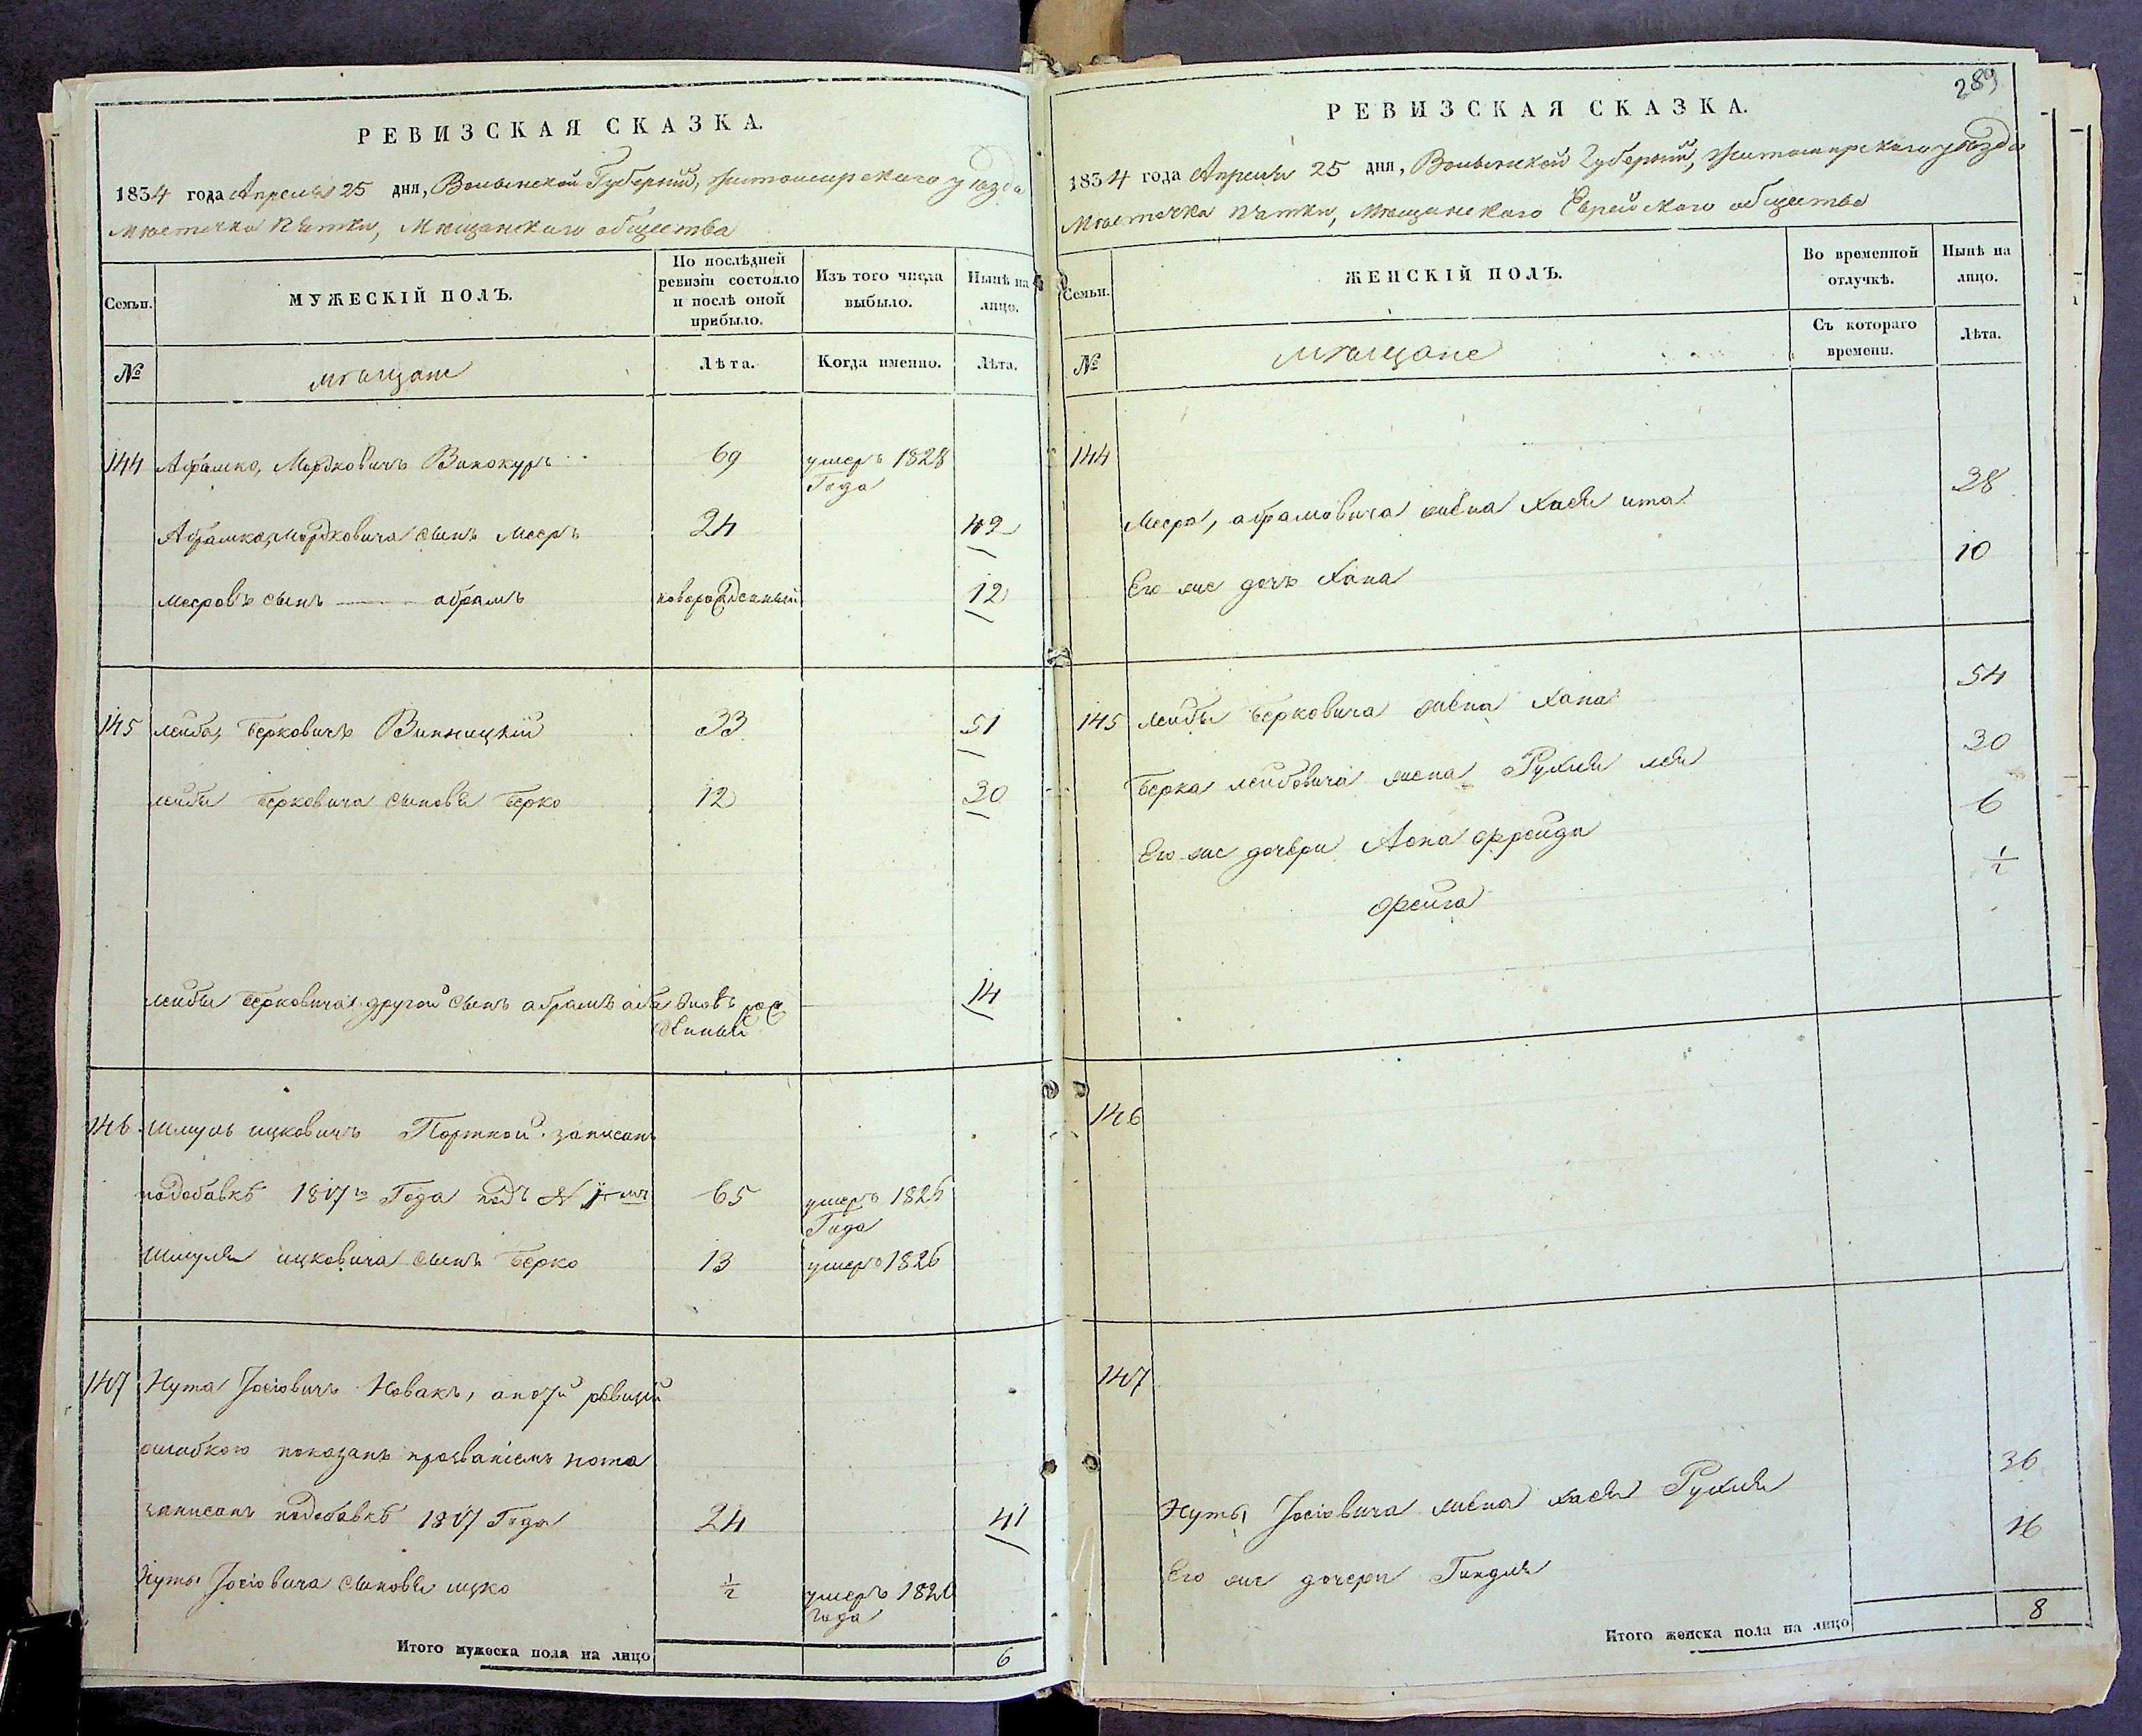 РЕВИЗСКАЯ СКАЗКА.
1834 года Апреля 25 дня, Волынской Губерніи, Житомирскаго уѣзда
Мѣстечка Пятки, Мѣщанскаго общества
Семьи.
МУЖЕСКІЙ ПОЛЪ.
По послѣдней ревизіи состояло и послѣ оной прибыло.
Изъ того числа выбыло.
Нынѣ на лицо.
№
мѣщане
Лѣта.
Когда именно.
Лѣта.
144 Абрамко, Мордковичъ Винокуръ 69 умеръ 1828
Года
Абрамка, Мордковича сынъ Мееръ 24 42
Мееровъ сынъ абрамъ новорожденный 12
145 лейба, Берковичъ Винницкій 33 51
лейбы Берковича сыновья Берко 12 30
лейбы Берковича другой сынъ абрамъ аба вновь рож 14
денный
146 Шмуль ицковичъ Портной записанъ
подобавкѣ 1817го Года подъ № 65 умеръ 1826
Года
Шмуля ицковича сынъ Берко 13 умеръ 1826
147 Нута Іосіовичъ Новакъ, апо 7й ревизіи
ошибкою показанъ прозваніемъ нота
записанъ подобавкѣ 1817 Года 24 41
Нуты Іосіовича сыновья ицко ½ умеръ 1820
Года
Итого мужеска пола на лицо 6
289
РЕВИЗСКАЯ СКАЗКА.
1834 года Апреля 25 дня, Волынской Губерніи, Житомирскаго уѣзда
Мѣстечка Пятки, Мѣщанскаго Еврейскаго общества
Семьи.
ЖЕНСКІЙ ПОЛЪ.
Во временной отлучкѣ.
Нынѣ на лицо.
№
мѣщане
Съ котораго времени.
Лѣта.
144
Меера, абрамовича жена Хася ита 38
Его же дочь Хана 10
145 лейбы Берковича жена Хана 54
Берка лейбовича жена Рухля лея 30
Его же дочери фрейда 6
фейга ½
146
147
Нуты Іосіовича жена хася Рухля 36
Его же дочери Гиндля 16
Итого женска пола на лицо 8